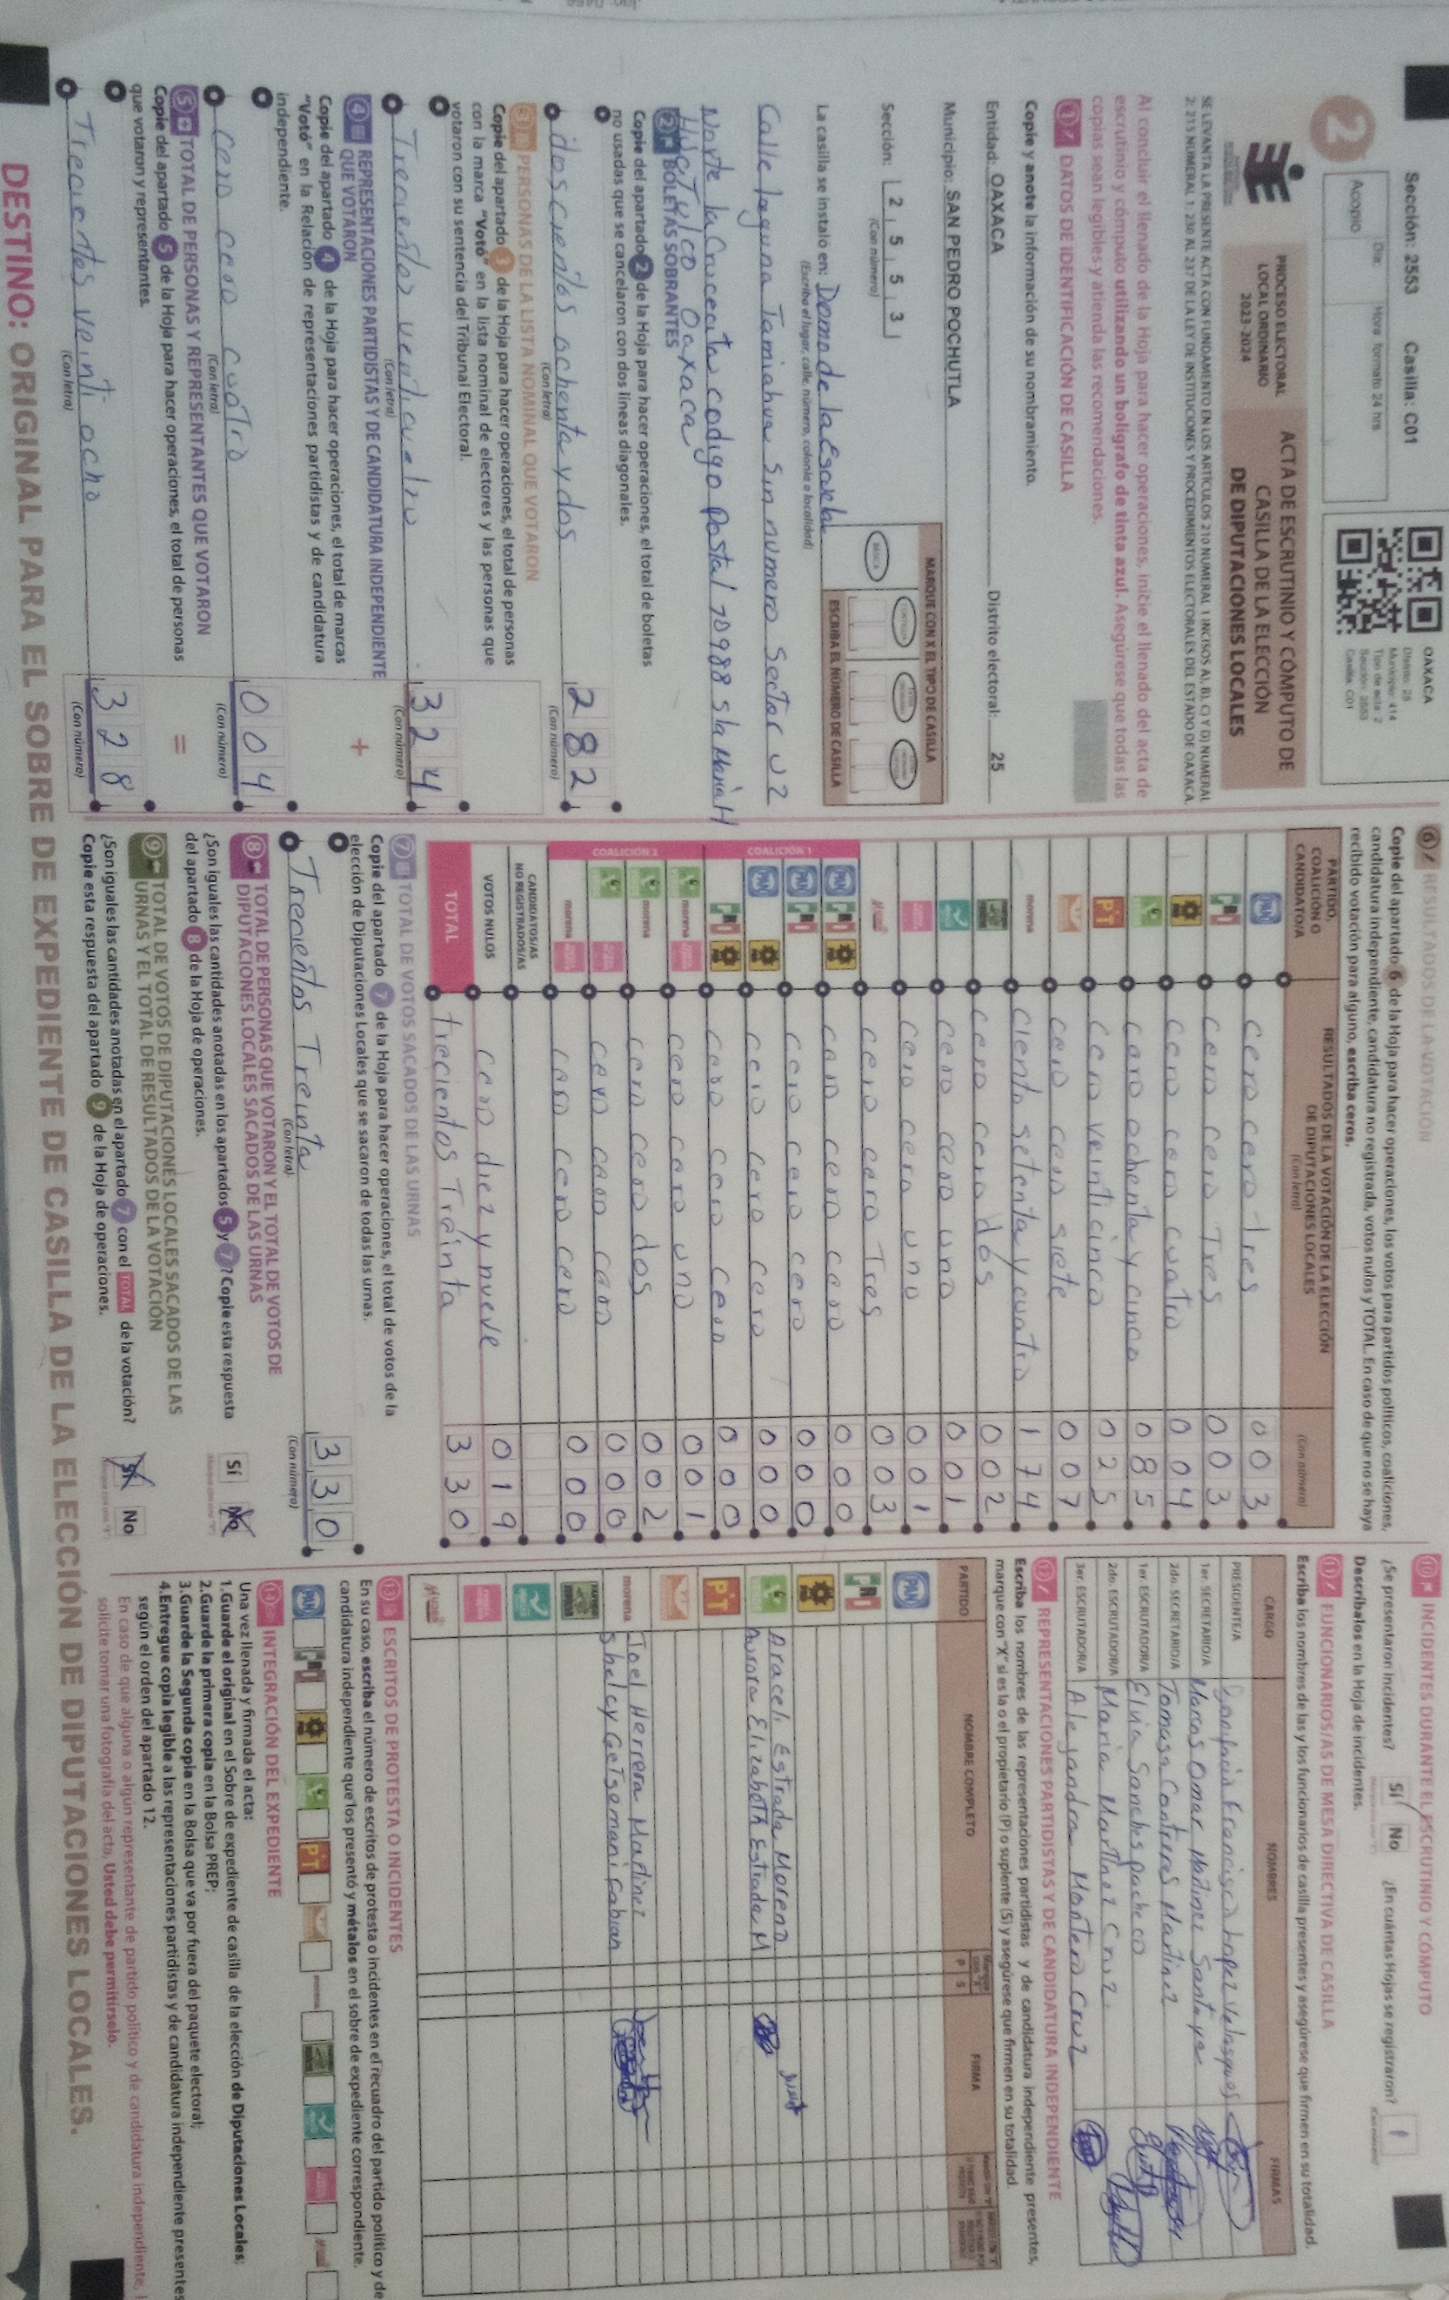 Sección: 2553 Casilla: C01
Día: Hora formato 24 hrs
Acopio
2
OAXACA
Distrito: 25
Municipio: 414
Tipo de acta: 2
Sección: 2553
Casilla: C01
PROCESO ELECTORAL
LOCAL ORDINARIO
2023-2024
ACTA DE ESCRUTINIO Y CÓMPUTO DE
CASILLA DE LA ELECCIÓN
DE DIPUTACIONES LOCALES
SE LEVANTA LA PRESENTE ACTA CON FUNDAMENTO EN LOS ARTÍCULOS 210 NUMERAL 1 INCISOS A), B), C) Y D) NUMERAL
2; 215 NUMERAL 1; 230 AL 237 DE LA LEY DE INSTITUCIONES Y PROCEDIMIENTOS ELECTORALES DEL ESTADO DE OAXACA.
Al concluir el llenado de la Hoja para hacer operaciones, inicie el llenado del acta de
escrutinio y cómputo utilizando un bolígrafo de tinta azul. Asegúrese que todas las
copias sean legibles y atienda las recomendaciones.
1 DATOS DE IDENTIFICACIÓN DE CASILLA
Copie y anote la información de su nombramiento.
Entidad: OAXACA Distrito electoral: 25
Municipio: SAN PEDRO POCHUTLA
Sección: 2 5 5 3
(Con número)
MARQUE CON X EL TIPO DE CASILLA
BÁSICA
ESCRIBA EL NÚMERO DE CASILLA
La casilla se instaló en: Domo de la Escuela
(Escriba el lugar, calle, número, colonia o localidad)
Calle laguna Tamiahua Sin numero Sector U2
Norte la Crucecita codigo Postal 70988 sta María H
Huatulco Oaxaca
2 BOLETAS SOBRANTES
Copie del apartado 2 de la Hoja para hacer operaciones, el total de boletas
no usadas que se cancelaron con dos líneas diagonales.
doscientos ochenta y dos 282
(Con letra) (Con número)
3 PERSONAS DE LA LISTA NOMINAL QUE VOTARON
Copie del apartado 3 de la Hoja para hacer operaciones, el total de personas
con la marca "Votó" en la lista nominal de electores y las personas que
votaron con su sentencia del Tribunal Electoral.
Trecientos veinticuatro 324
(Con letra) (Con número)
+
4 REPRESENTACIONES PARTIDISTAS Y DE CANDIDATURA INDEPENDIENTE
QUE VOTARON
Copie del apartado 4 de la Hoja para hacer operaciones, el total de marcas
"Votó" en la Relación de representaciones partidistas y de candidatura
independiente.
cero cero cuatro 004
(Con letra) (Con número)
=
5 TOTAL DE PERSONAS Y REPRESENTANTES QUE VOTARON
Copie del apartado 5 de la Hoja para hacer operaciones, el total de personas
que votaron y representantes.
Trecientos veinti ocho 328
(Con letra) (Con número)
6 RESULTADOS DE LA VOTACIÓN
Copie del apartado 6 de la Hoja para hacer operaciones, los votos para partidos políticos, coaliciones,
candidatura independiente, candidatura no registrada, votos nulos y TOTAL. En caso de que no se haya
recibido votación para alguno, escriba ceros.
PARTIDO,
COALICIÓN O
CANDIDATO/A
RESULTADOS DE LA VOTACIÓN DE LA ELECCIÓN
DE DIPUTACIONES LOCALES
(Con letra) (Con número)
PAN cero cero tres 003
PRI cero cero Tres 003
cero cero cuatro 004
cero ochenta y cinco 085
PT cero veinticinco 025
cero cero siete 007
morena ciento setenta y cuatro 174
cero cero dos 002
cero cero uno 001
cero cero uno 001
cero cero Tres 003
COALICIÓN 1
PAN PRI cero cero cero 000
PAN PRI cero cero cero 000
PAN cero cero cero 000
PRI cero cero cero 000
COALICIÓN 2
morena cero cero uno 001
morena cero cero dos 002
cero cero cero 000
morena cero cero cero 000
CANDIDATOS/AS
NO REGISTRADOS/AS
VOTOS NULOS cero diez y nueve 019
TOTAL trecientos Treinta 330
7 TOTAL DE VOTOS SACADOS DE LAS URNAS
Copie del apartado 7 de la Hoja para hacer operaciones, el total de votos de la
elección de Diputaciones Locales que se sacaron de todas las urnas.
Trecientos Treinta 330
(Con letra) (Con número)
8 TOTAL DE PERSONAS QUE VOTARON Y EL TOTAL DE VOTOS DE
DIPUTACIONES LOCALES SACADOS DE LAS URNAS
¿Son iguales las cantidades anotadas en los apartados 5 y 7? Copie esta respuesta
del apartado 8 de la Hoja de operaciones.
Sí No
9 TOTAL DE VOTOS DE DIPUTACIONES LOCALES SACADOS DE LAS
URNAS Y EL TOTAL DE RESULTADOS DE LA VOTACIÓN
¿Son iguales las cantidades anotadas en el apartado 7 con el TOTAL de la votación?
Copie esta respuesta del apartado 9 de la Hoja de operaciones.
Sí No
10 INCIDENTES DURANTE EL ESCRUTINIO Y CÓMPUTO
¿Se presentaron incidentes? Sí No ¿En cuántas Hojas se registraron?
Descríbalos en la Hoja de incidentes.
11 FUNCIONARIOS/AS DE MESA DIRECTIVA DE CASILLA
Escriba los nombres de las y los funcionarios de casilla presentes y asegúrese que firmen en su totalidad.
CARGO NOMBRES FIRMAS
PRESIDENTE/A Bonifacia Francisca Lopez Velasques
1er. SECRETARIO/A Marcos Omar Martinez Santiago
2do. SECRETARIO/A Tomasa Contreras Martinez
1er. ESCRUTADOR/A Elvia Sanches pacheco
2do. ESCRUTADOR/A Maria Martinez Cruz
3er. ESCRUTADOR/A Alejandra Montero Cruz
12 REPRESENTACIONES PARTIDISTAS Y DE CANDIDATURA INDEPENDIENTE
Escriba los nombres de las representaciones partidistas y de candidatura independiente presentes,
marque con "X" si es la o el propietario (P) o suplente (S) y asegúrese que firmen en su totalidad.
PARTIDO NOMBRE COMPLETO P S FIRMA
PAN
PRI
Araceli Estrada Moreno
Aurora Elizabeth Estrada M
PT
morena Joel Herrera Martinez
Shelcy Getsemani Fabian
13 ESCRITOS DE PROTESTA O INCIDENTES
En su caso, escriba el número de escritos de protesta o incidentes en el recuadro del partido político y de
candidatura independiente que los presentó y métalos en el sobre de expediente correspondiente.
PAN PRI PT
14 INTEGRACIÓN DEL EXPEDIENTE
Una vez llenada y firmada el acta:
1.Guarde el original en el Sobre de expediente de casilla de la elección de Diputaciones Locales;
2.Guarde la primera copia en la Bolsa PREP;
3.Guarde la Segunda copia en la Bolsa que va por fuera del paquete electoral;
4.Entregue copia legible a las representaciones partidistas y de candidatura independiente presentes
según el orden del apartado 12.
En caso de que alguna o algún representante de partido político y de candidatura independiente,
solicite tomar una fotografía del acta, Usted debe permitírselo.
DESTINO: ORIGINAL PARA EL SOBRE DE EXPEDIENTE DE CASILLA DE LA ELECCIÓN DE DIPUTACIONES LOCALES.